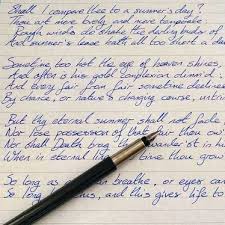 Shall I compare thee to a summer's day?
Thou art more lovely and more temperate.
Rough winds do shake the darling buds of
And summer's lease hath all too short a da
Sometime too hot the eye of heaven shines,
And often is his gold complexion dimm'd.
And every fair from fair sometime declines
By chance, or nature's changing course, untrim
But thy eternal summer shall not fade
Nor lose possession of that fair thou ow
Nor shall Death brag thou wander'st in his
When in eternal lines time thou grow
So long as breathe, or eyes can
So long this, and this gives life to